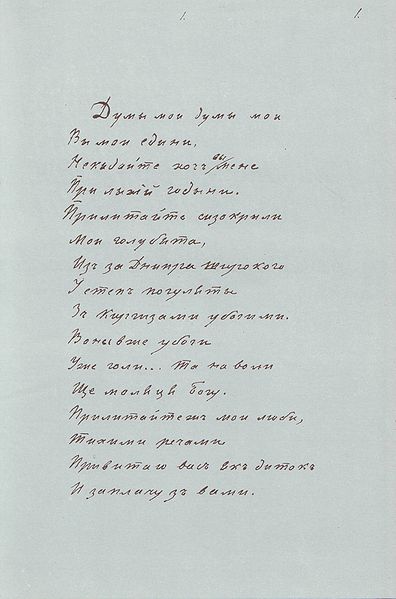 1. 1.
Думы мои думы мои
Вы мои едыни,
Некыдайте хочъ вы мене
При лыхій годыни.
Прилитайте сизокрили
Мои голубята,
Изъ за Днипра широкого
У степъ погуляты
Зъ Киргизами убогими.
Вонывже убоги
Уже голи... та на воли
Ще моляця Богу.
Прилитайтежъ мои люби,
Тихими речами
Привитаю васъ якъ дитокъ
И заплачу зъ вами.